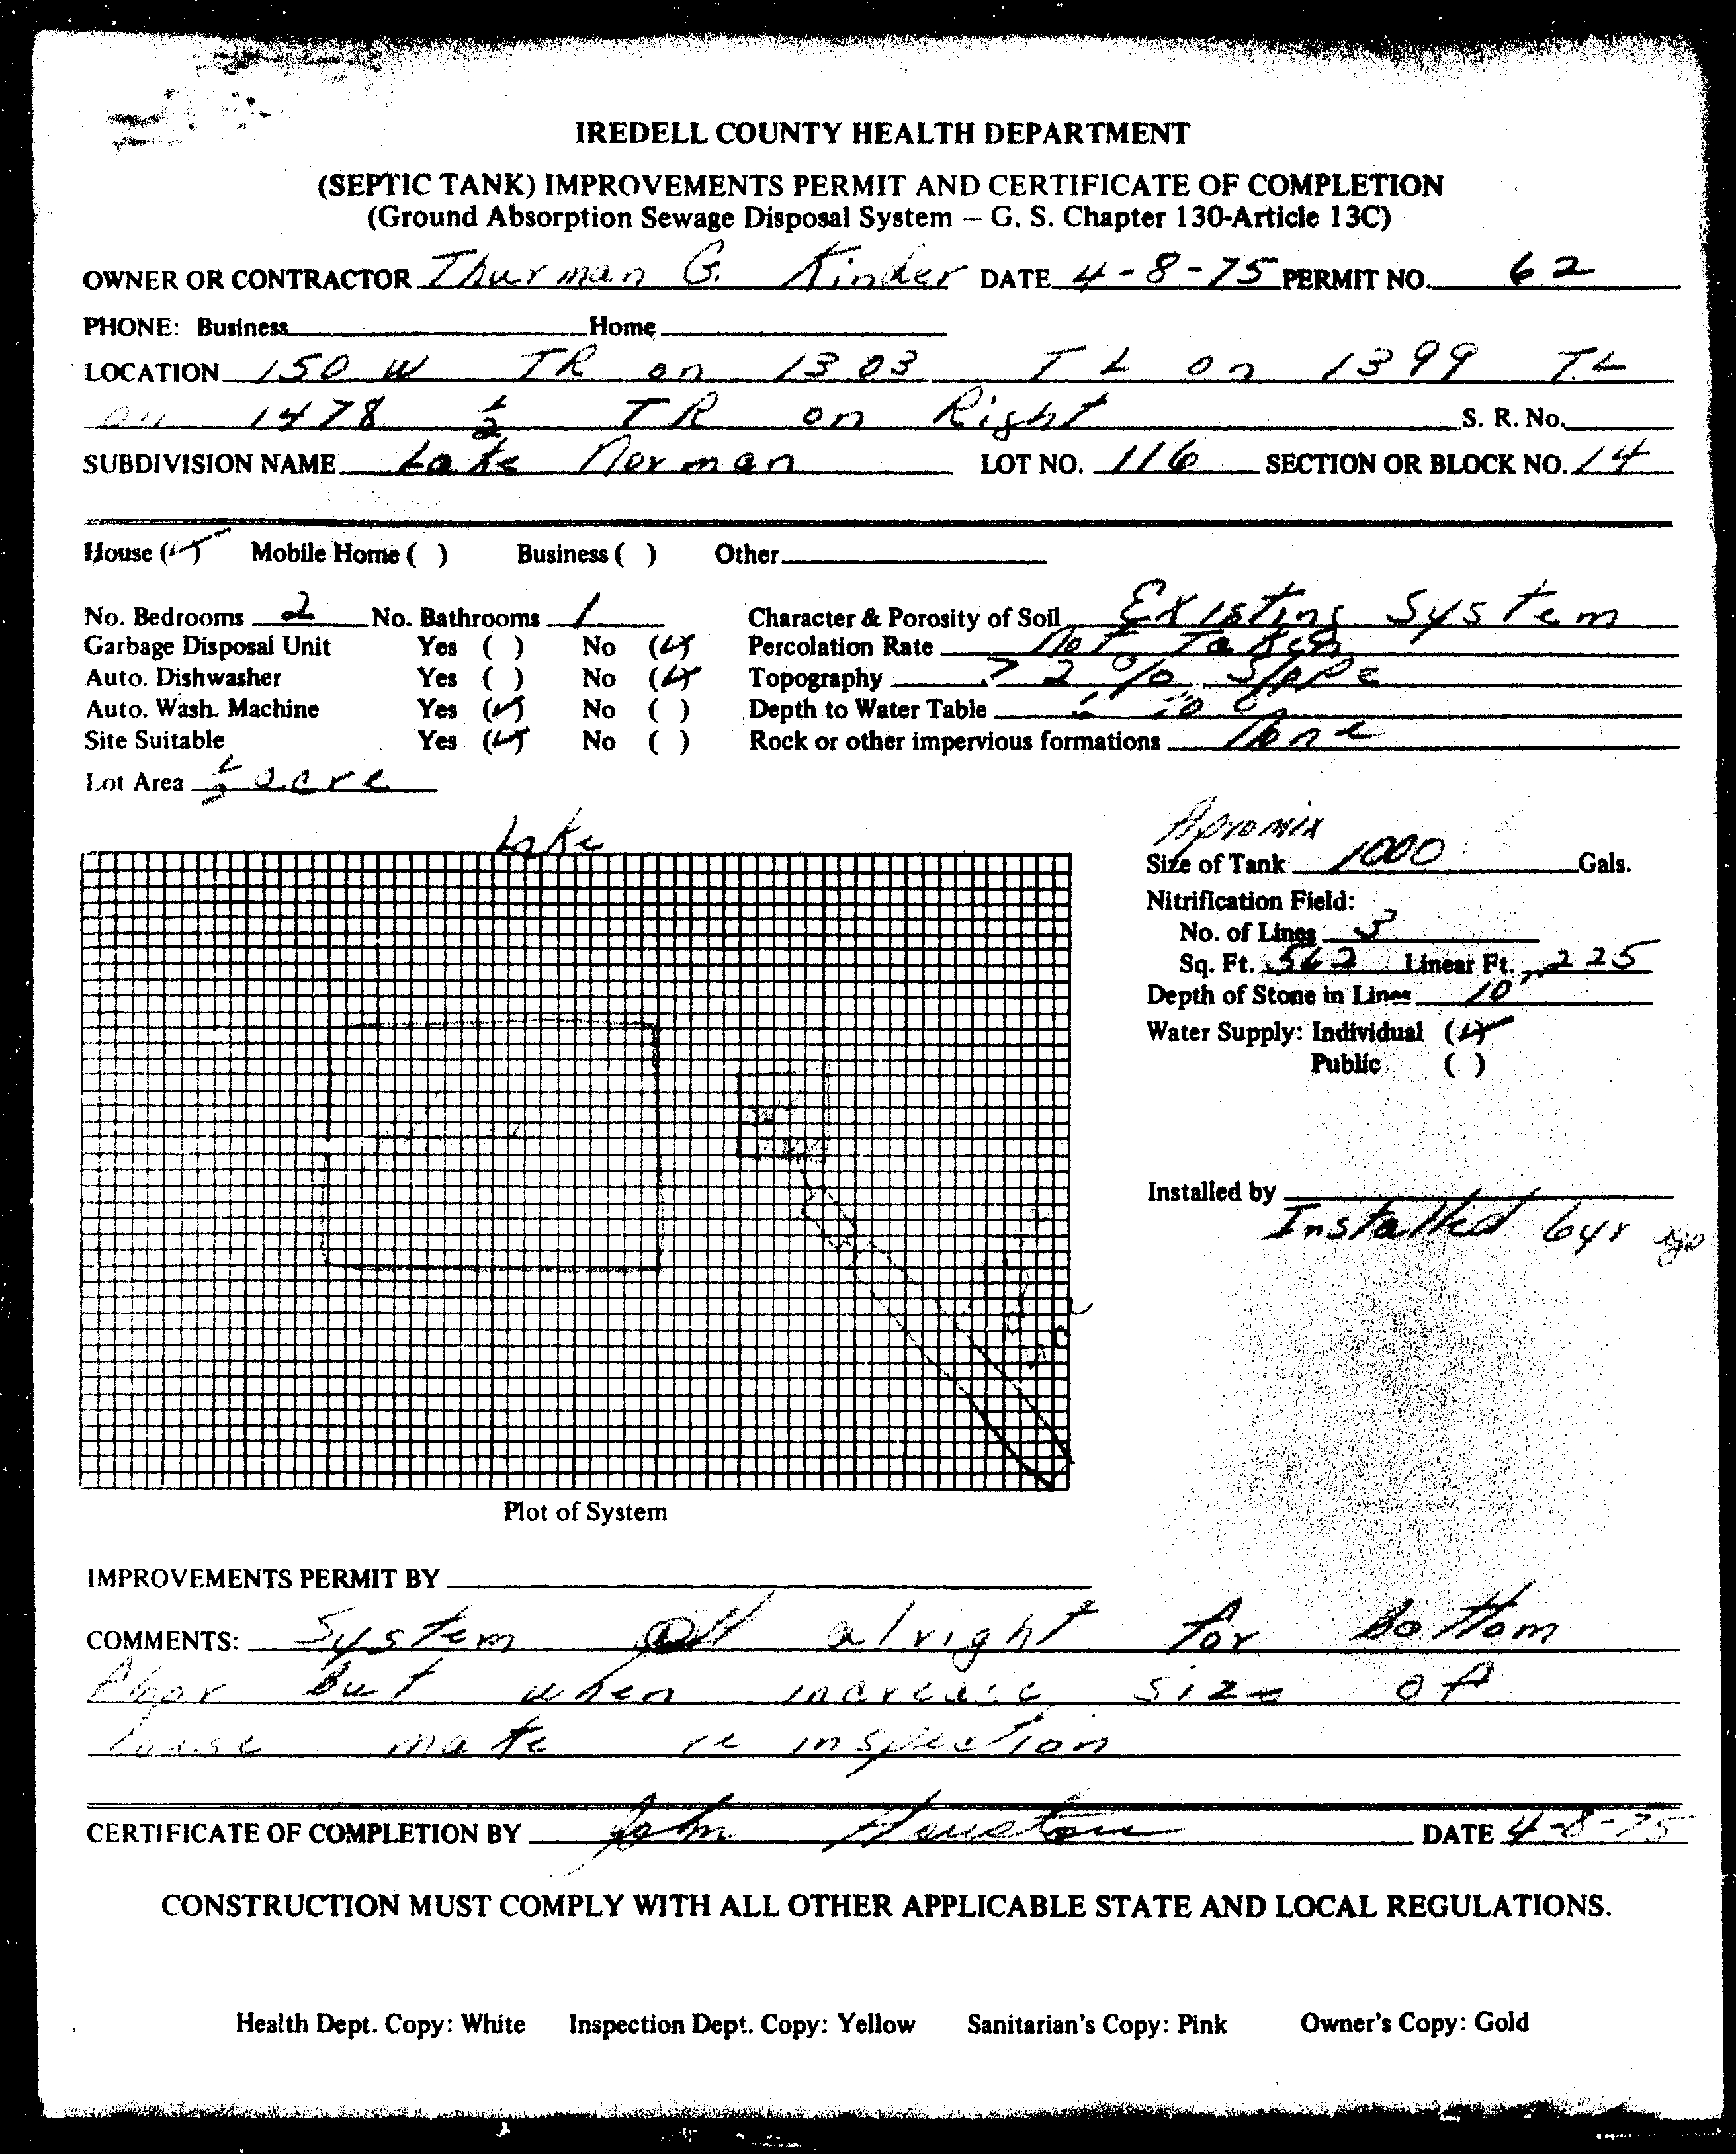 IREDELL COUNTY HEALTH DEPARTMENT
(SEPTIC TANK) IMPROVEMENTS PERMIT AND CERTIFICATE OF COMPLETION
(Ground Absorption Sewage Disposal System – G. S. Chapter 130-Article 13C)
OWNER OR CONTRACTOR Thurman G. Kinder DATE 4-8-75 PERMIT NO. 62
PHONE: Business Home
LOCATION 150 W TR on 1303 TL on 1399 TL
on 1478 1/2 TR on Right S. R. No.
SUBDIVISION NAME Lake Norman LOT NO. 116 SECTION OR BLOCK NO. 14
House (✓) Mobile Home ( ) Business ( ) Other
No. Bedrooms 2 No. Bathrooms 1 Character & Porosity of Soil Existing System
Garbage Disposal Unit Yes ( ) No (✓) Percolation Rate Not Taken
Auto. Dishwasher Yes ( ) No (✓) Topography > 2 % Slope
Auto. Wash. Machine Yes (✓) No ( ) Depth to Water Table
Site Suitable Yes (✓) No ( ) Rock or other impervious formations None
Lot Area 1/2 acre
Lake
Apromix
Size of Tank 1000 Gals.
Nitrification Field:
No. of Lines 3
Sq. Ft. 562 Linear Ft. 225
Depth of Stone in Lines 10"
Water Supply: Individual (✓)
Public ( )
Installed by
Installed 6yr ago
Plot of System
IMPROVEMENTS PERMIT BY
COMMENTS: System alright for bottom
floor But when increase size of
house make re inspection
CERTIFICATE OF COMPLETION BY John Houston DATE 4-8-75
CONSTRUCTION MUST COMPLY WITH ALL OTHER APPLICABLE STATE AND LOCAL REGULATIONS.
Health Dept. Copy: White Inspection Dept. Copy: Yellow Sanitarian's Copy: Pink Owner's Copy: Gold